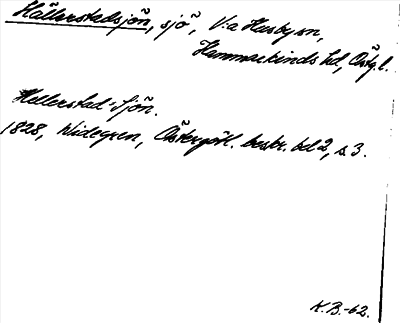 Hällerstadsjön, sjö, V:a Husby sn,
Hammarkinds hd, Östg.l.
Hellerstad-Sjön.
1828, Widegren, Östergötl. beskr. bd 2, s. 3.
K.B.-62.